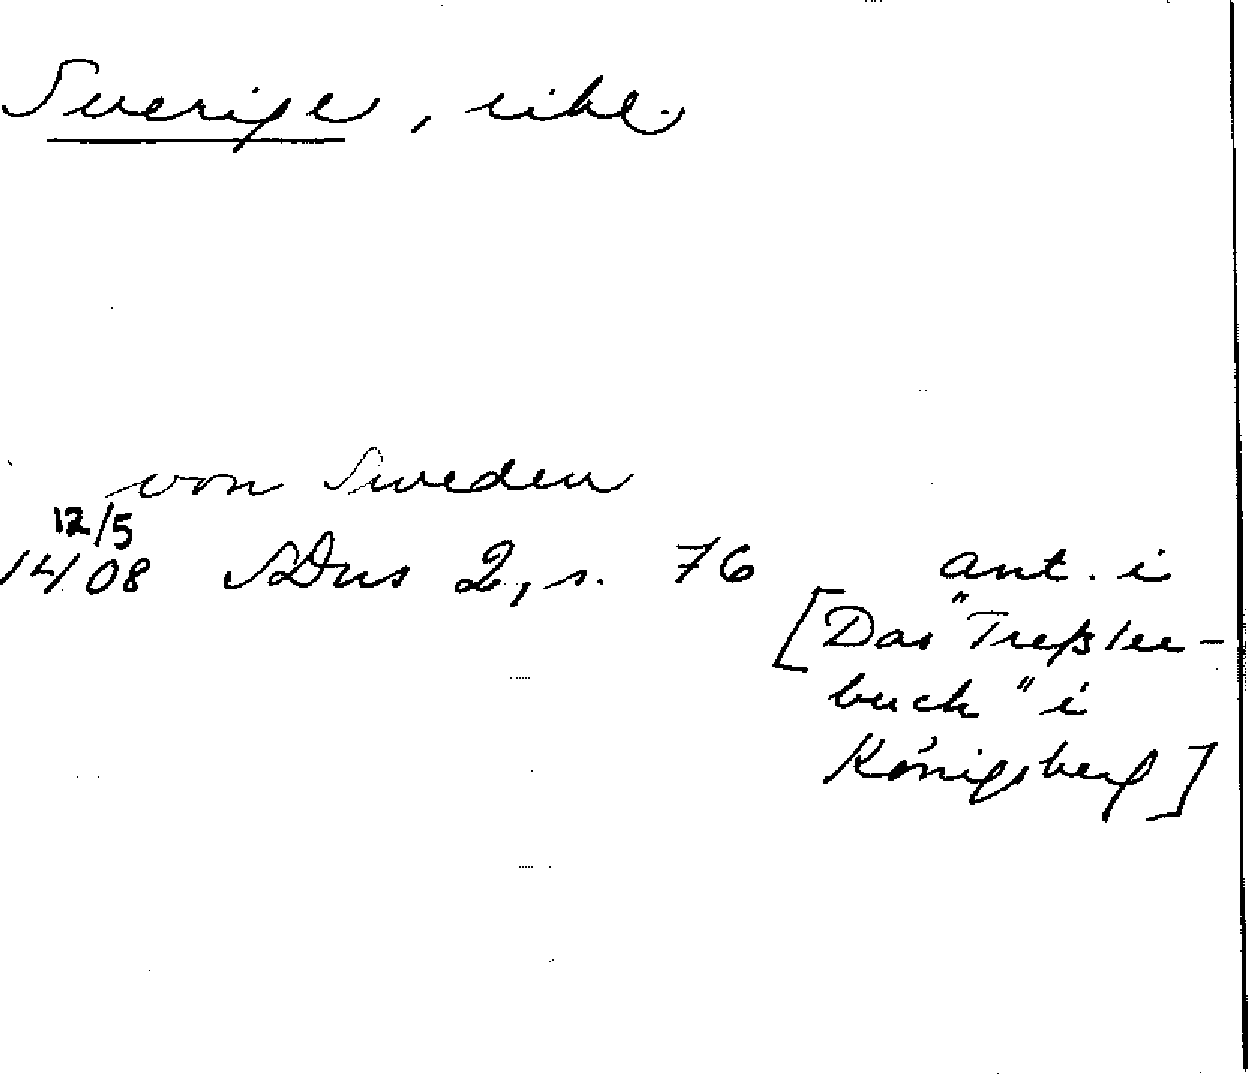 Sverige, rike.
von Sweden
12/5
1408 SDns 2, s. 76 ant. i
[Das "Treßler-
buch" i
Königsberg]